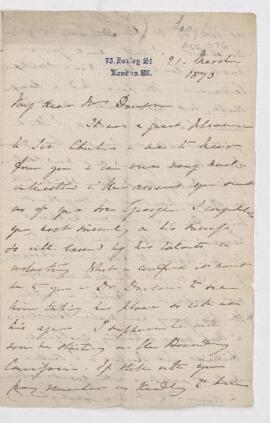 73, Harley St
London. W.
21. March
1873
My dear Mrs
It was a great pleasure
to Sir Charles & me to hear
from you & we were very much
interested in the account you send
us of your son George. I congratulate
you most sincerely on his success
so well earned by his talents &
industry. What a comfort it must
be to you & Dr. to see
him taking his place so
his age. I suppose he will
soon be starting on the Boundary
Commission. If still with you
pray remember us kindly to him